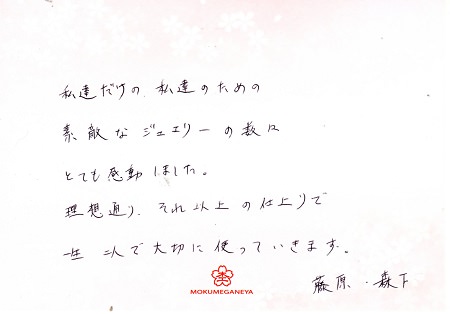 私達だけの、私達のための
素敵なジュエリーの数々
とても感動しました。
理想通り、それ以上の仕上りで
一生 二人で大切に使っていきます。
藤原・森下
MOKUMEGANEYA